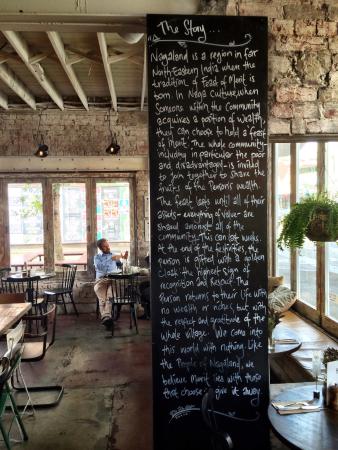 The Story...
Nagaland is a region in far
North Eastern India where the
tradition of Feast of Merit is
born. In Naga Culture, when
Someone within the Community
acquires a position of wealth,
they can choose to hold a feast
of merit. The whole community-
including in particular the poor
and disadvantaged- is invited
to join together to share the
fruits of the Persons wealth.
The feast lasts until all of their
assets - everything of value - are
shared amongst all of the
community. This can last weeks.
At the end of the festivities, the
person is gifted with a golden
cloak the highest sign of
recognition and respect. The
Person returns to their life with
no wealth or riches, but with
the respect and gratitude of the
whole village. We come into
this world with nothing. Like
the People of Nagaland, we
believe Merit lies with those
that choose to give it away.